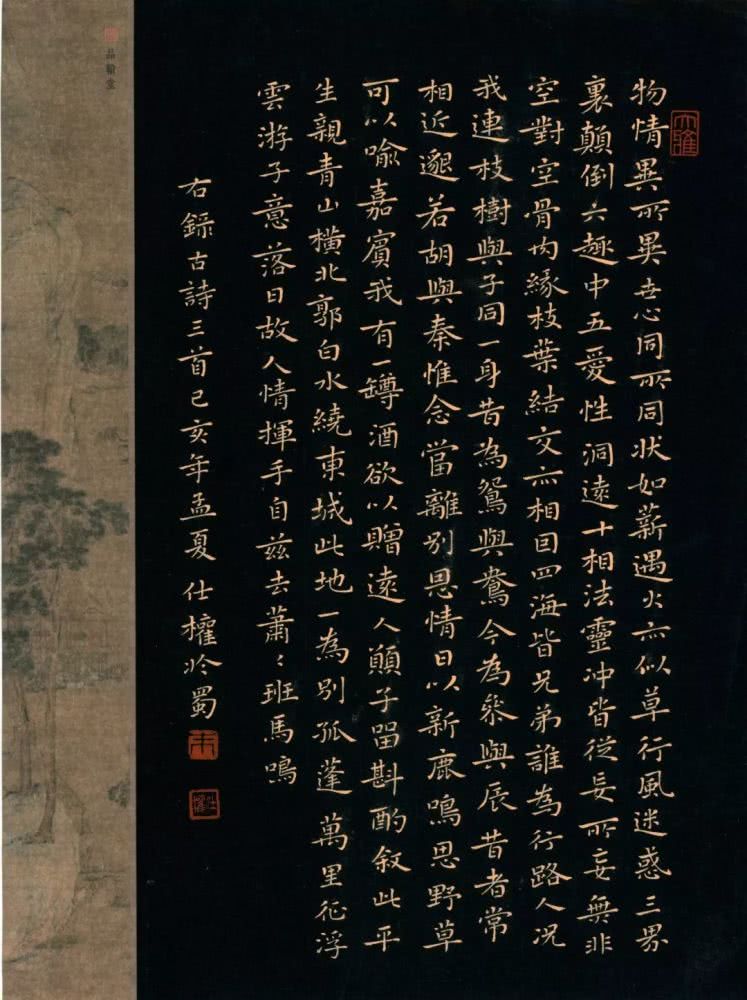 大雅
物情異所異世心同所同狀如薪遇火亦似草行風迷惑三界
裏顛倒六趣中五愛性洞遠十相法靈沖皆從妄所妄無非
空對空骨肉緣枝葉結交亦相因四海皆兄弟誰為行路人況
我連枝樹與子同一身昔為鴛與鴦今為參與辰昔者常
相近邈若胡與秦惟念當離別恩情日以新鹿鳴思野草
可以喻嘉賓我有一罇酒欲以贈遠人願子留斟酌敘此平
生親青山橫北郭白水繞東城此地一為別孤蓬萬里征浮
雲游子意落日故人情揮手自茲去蕭〻班馬鳴
右錄古詩三首己亥年孟夏仕權於蜀
朱
仕權
品翰堂